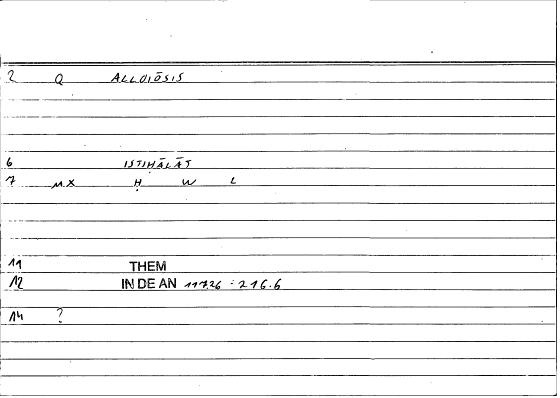 2 Q ALLOIŌSIS
6 ISTIḤĀLĀT
7 MX Ḥ W L
11 THEM
12 IN DE AN 11726 : 216.6
14 ?